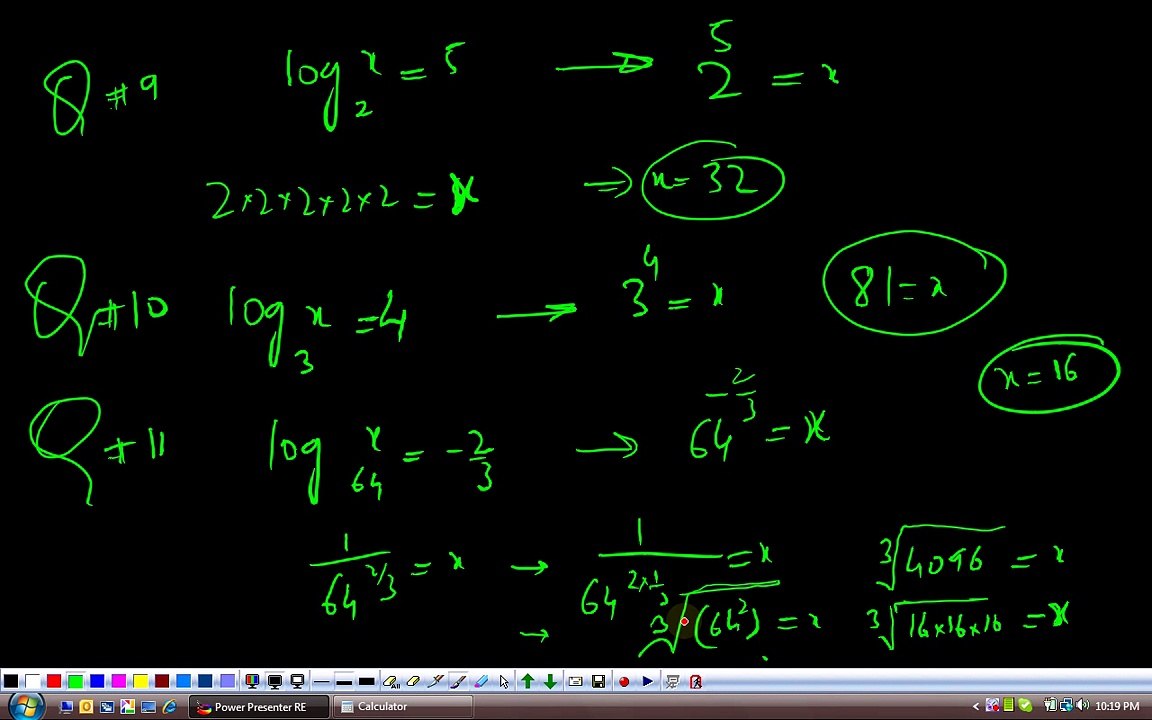 Q #9 log₂ x = 5 → 2⁵ = x
2×2×2×2×2 = x ⇒ x = 32
Q #10 log₃ x = 4 → 3⁴ = x 81 = x
x = 16
Q #11 log₆₄ x = -2/3 → 64^(-2/3) = x
1/64^(2/3) = x → 1/64^(2×1/3) = x ∛4096 = x
→ ∛(64²) = x ∛16×16×16 = x
Power Presenter RE Calculator 10:19 PM